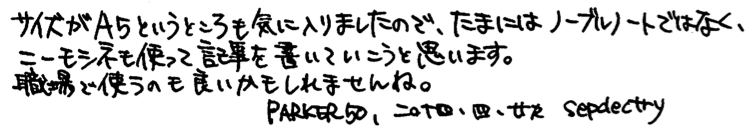 サイズがA5というところも気に入りましたので、たまにはノーブルノートではなく、
ニーモシネも使って記事を書いていこうと思います。
職場で使うのも良いかもしれませんね。
PARKER50, 二〇十四、四、廿九 sepdectry